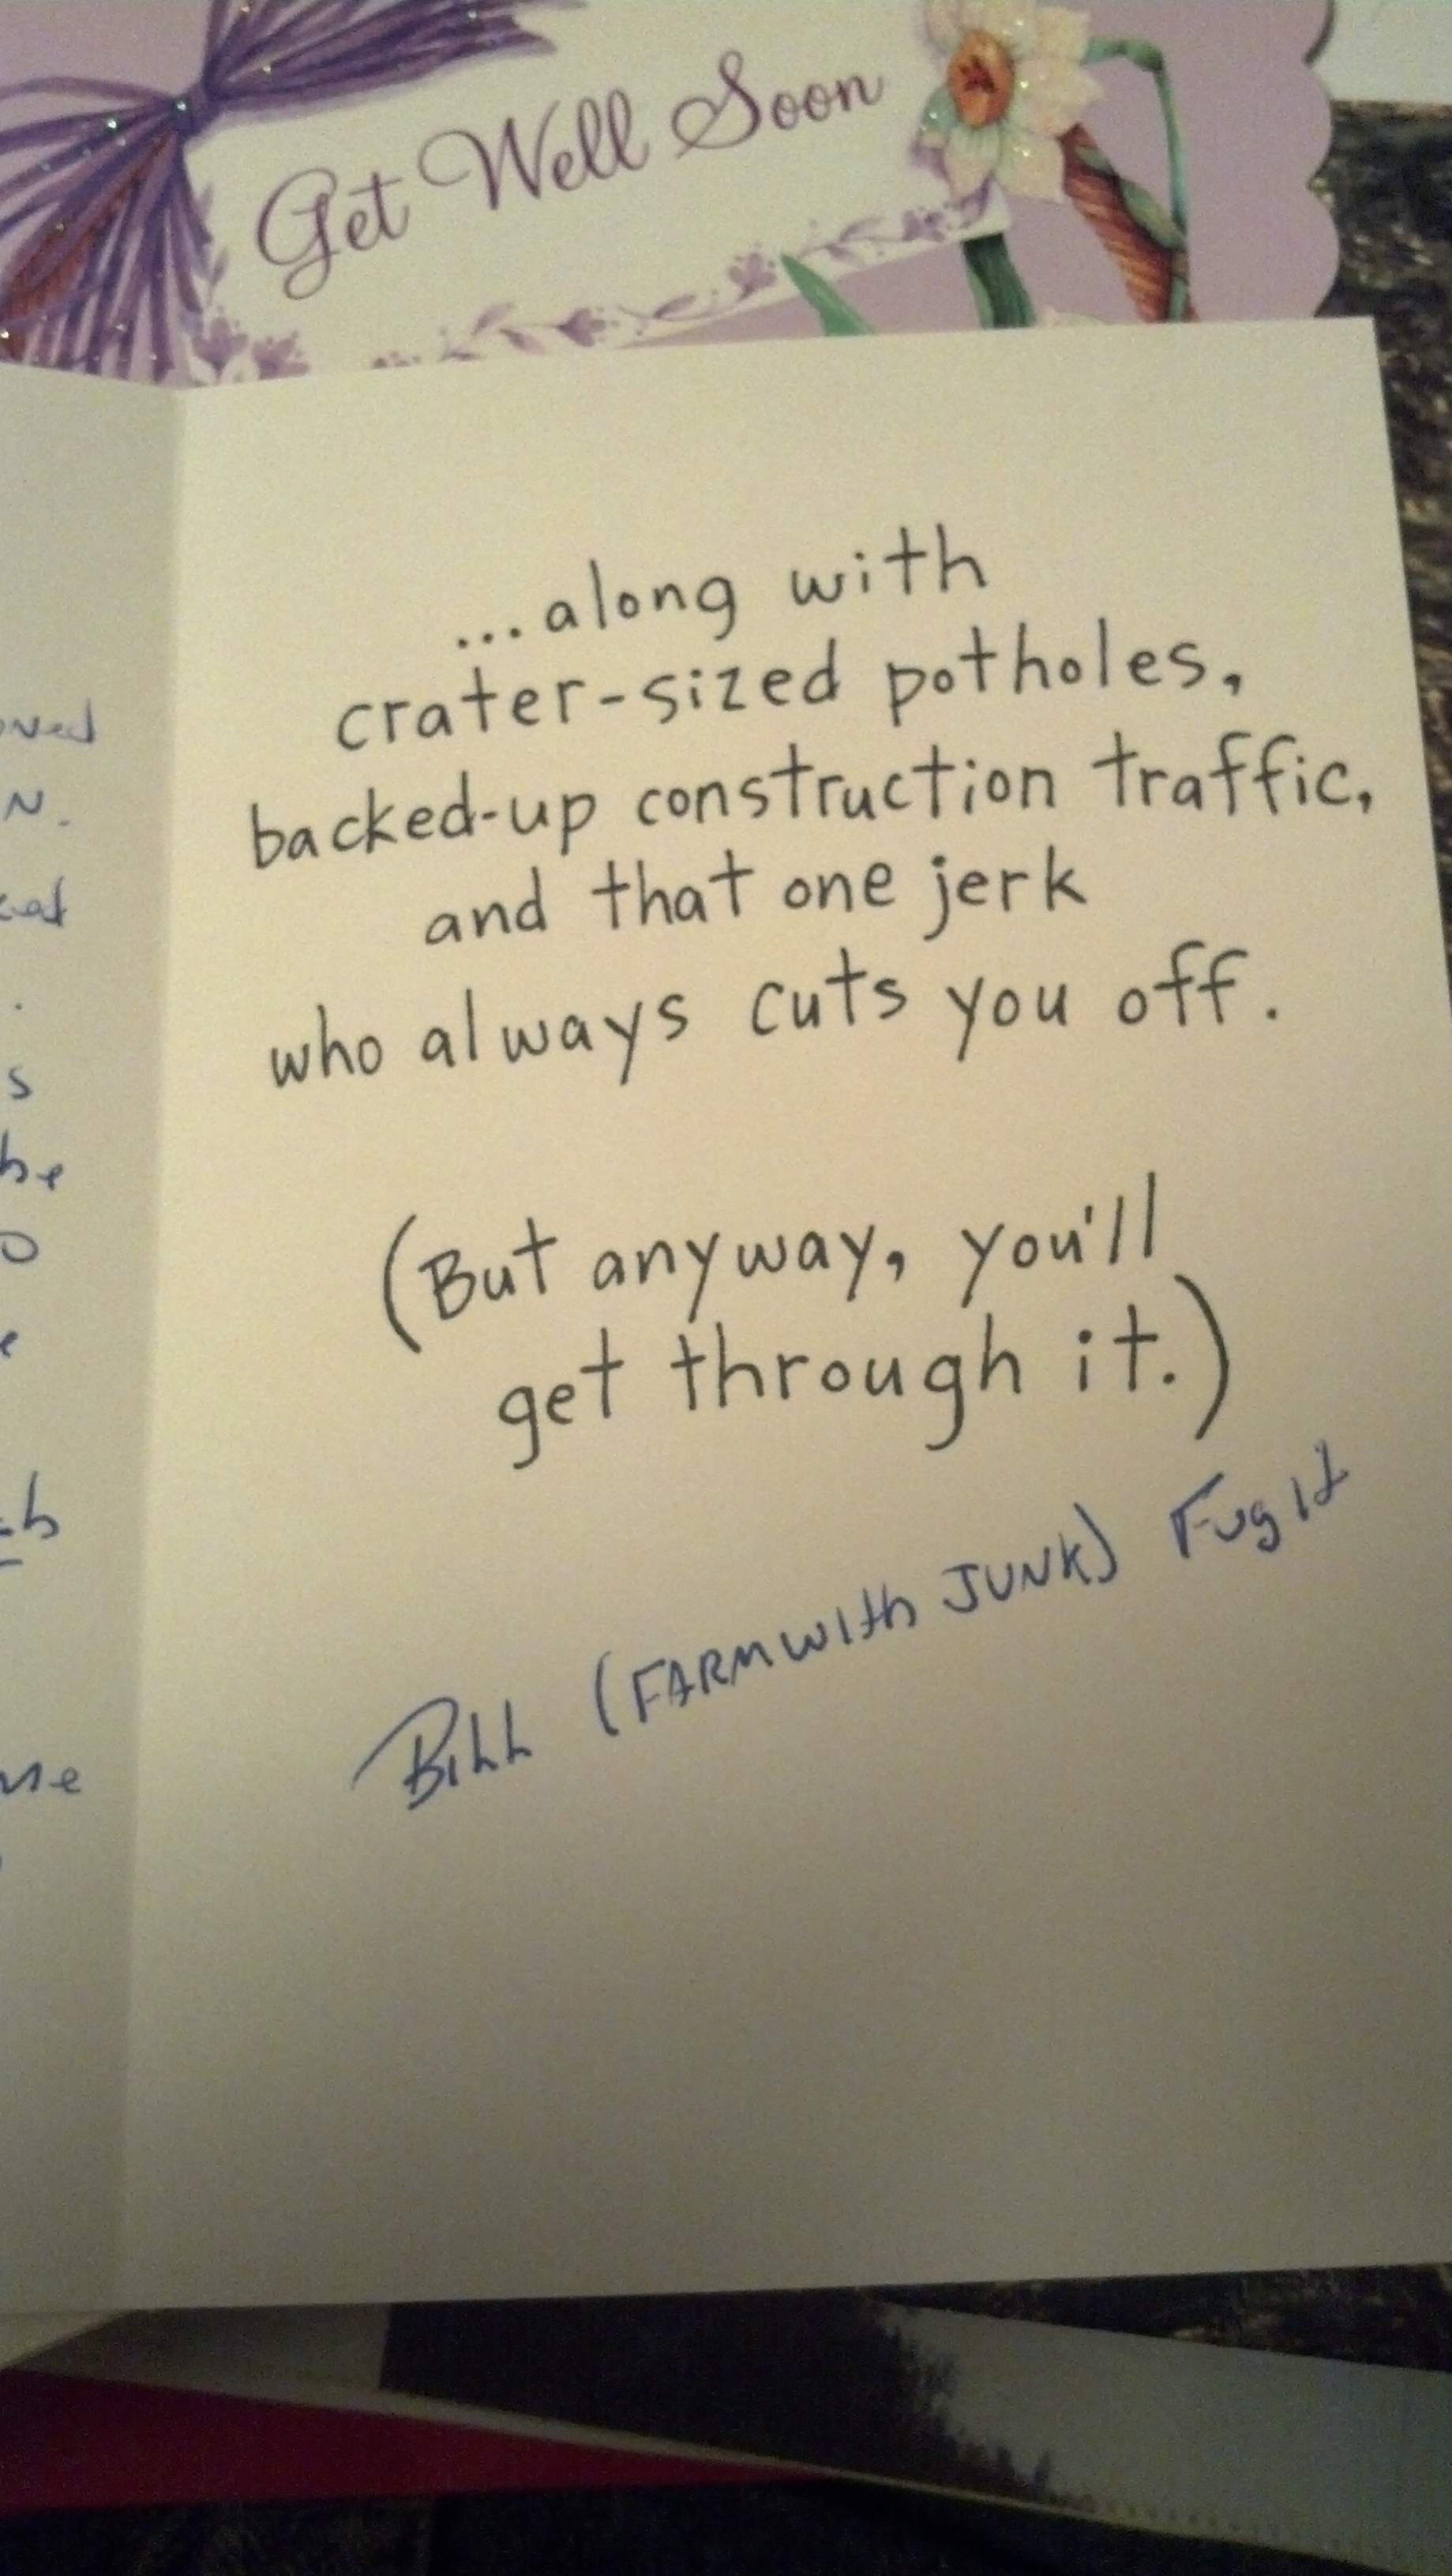 Get Well Soon
...along with
crater-sized potholes,
backed-up construction traffic,
and that one jerk
who always cuts you off.
(But anyway, you'll
get through it.)
Bill (FARMWith JUNK) Fugit
N.
s
be